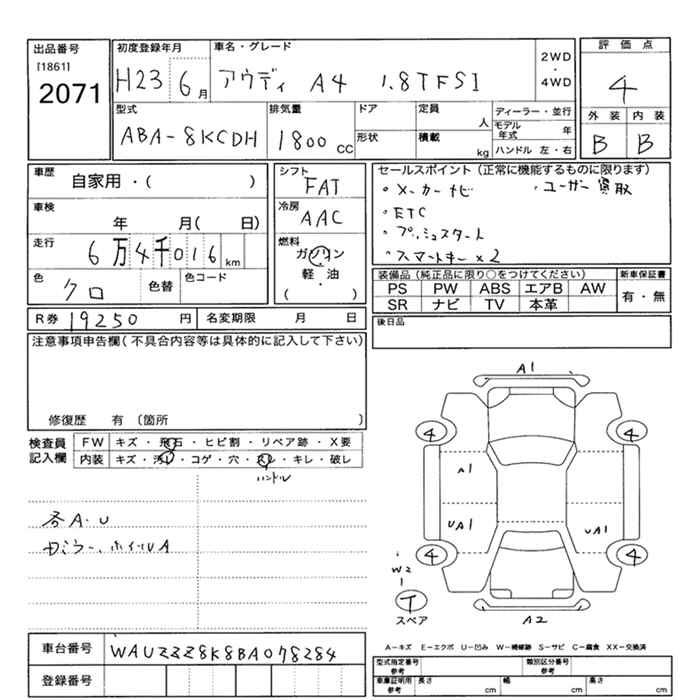 出品番号
[1861]
2071
初度登録年月
H23 6月
車名・グレード
アウディ A4 1.8TFSI
2WD
・
4WD
評価点
4
外装 内装
B B
型式
ABA-8KCDH
排気量
1800 CC
ドア
形状
定員
人
積載
kg
ディーラー・並行
モデル年式 年
ハンドル 左・右
車歴
自家用・( )
車検
年 月( 日)
走行
6万4千016 km
色
クロ
色替
色コード
シフト
FAT
冷房
AAC
燃料
ガソリン
・
軽・油
( )
セールスポイント(正常に機能するものに限ります)
・メーカーナビ ・ユーザー買取
・ETC
・プッシュスタート
・スマートキー×2
装備品(純正品に限り○をつけてください)
PS PW ABS エアB AW
SR ナビ TV 本革
新車保証書
有・無
R券 19250 円
名変期限 月 日
後日品
注意事項申告欄(不具合内容等は具体的に記入して下さい)
修復歴 有 〔箇所 〕
検査員
記入欄
FW キズ・飛石・ヒビ割・リペア跡・X要
内装 キズ・汚レ・コゲ・穴・スレ・キレ・破レ
ハンドル
各A・U
ドアミラー、ホイールUA
A1
4 4
A1
UA1 UA1
4 4
W2
T
スペア
A2
A-キズ E-エクボ U-凹み W-補修跡 S-サビ C-腐食 XX-交換済
車台番号
WAUZZZ8K8BA078284
登録番号
型式指定番号
参考
類別区分番号
参考
車庫証明用
参考
長さ cm 幅 cm 高さ cm